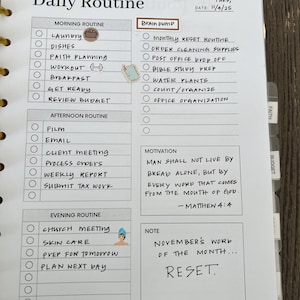 Daily Routine
DATE: 11/4/25
MORNING ROUTINE
LAUNDRY
DISHES
FAITH PLANNING
WORKOUT
BREAKFAST
GET READY
REVIEW BUDGET
BRAIN DUMP
MONTHLY RESET ROUTINE
ORDER CLEANING SUPPLIES
POST OFFICE DROP OFF
BIBLE STUDY PREP
WATER PLANTS
COUNT/ORGANIZE
OFFICE ORGANIZATION
AFTERNOON ROUTINE
FILM
EMAIL
CLIENT MEETING
PROCESS ORDERS
WEEKLY REPORT
SUBMIT TAX WORK
MOTIVATION
MAN SHALL NOT LIVE BY
BREAD ALONE, BUT BY
EVERY WORD THAT COMES
FROM THE MOUTH OF GOD
- MATTHEW 4:4
EVENING ROUTINE
CHURCH MEETING
SKIN CARE
PREP FOR TOMORROW
PLAN NEXT DAY
NOTE
NOVEMBER'S WORD
OF THE MONTH...
RESET.
FAITH
BUDGET